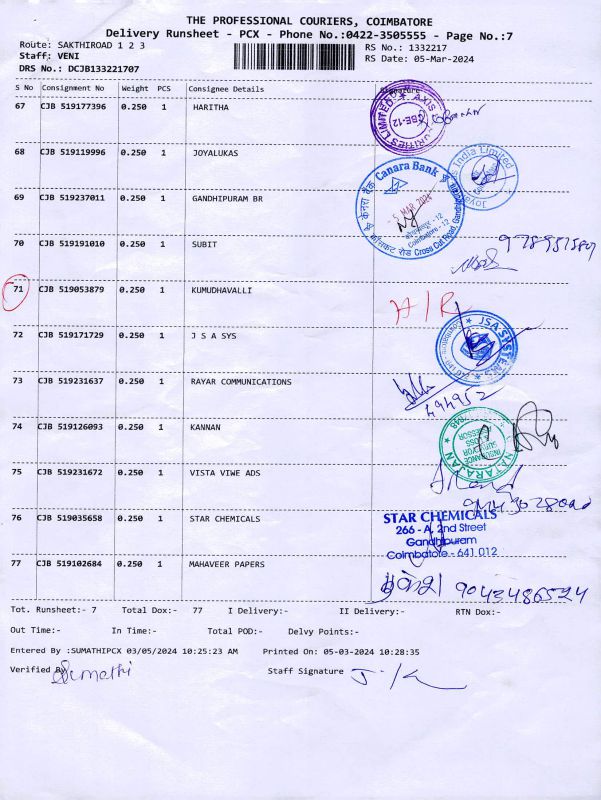 THE PROFESSIONAL COURIERS, COIMBATORE
Delivery Runsheet - PCX - Phone No.:0422-3505555 - Page No.:7
Route: SAKTHIROAD 1 2 3
RS No.: 1332217
Staff: VENI
RS Date: 05-Mar-2024
DRS No.: DCJB133221707
S No Consignment No Weight PCS Consignee Details Signature
67 CJB 519177396 0.250 1 HARITHA
CBE-12
68 CJB 519119996 0.250 1 JOYALUKAS
Canara Bank
केनरा बैंक
69 CJB 519237011 0.250 1 GANDHIPURAM BR
5 MAR 2024
Coimbatore - 12
Cross Cut Road,
70 CJB 519191010 0.250 1 SUBIT
71 CJB 519053879 0.250 1 KUMUDHAVALLI
A/R
72 CJB 519171729 0.250 1 J S A SYS
JSA SYSTEMS
73 CJB 519231637 0.250 1 RAYAR COMMUNICATIONS
494952
74 CJB 519126093 0.250 1 KANNAN
NATARAJAN
INSURANCE
SURVEYOR
75 CJB 519231672 0.250 1 VISTA VIWE ADS
76 CJB 519035658 0.250 1 STAR CHEMICALS
STAR CHEMICALS
266 - A, 2nd Street
Gandhipuram
Coimbatore - 641 012
77 CJB 519102684 0.250 1 MAHAVEER PAPERS
9043486524
Tot. Runsheet:- 7 Total Dox:- 77 I Delivery:- II Delivery:- RTN Dox:-
Out Time:- In Time:- Total POD:- Delvy Points:-
Entered By :SUMATHIPCX 03/05/2024 10:25:23 AM Printed On: 05-03-2024 10:28:35
Verified By Sumathi Staff Signature